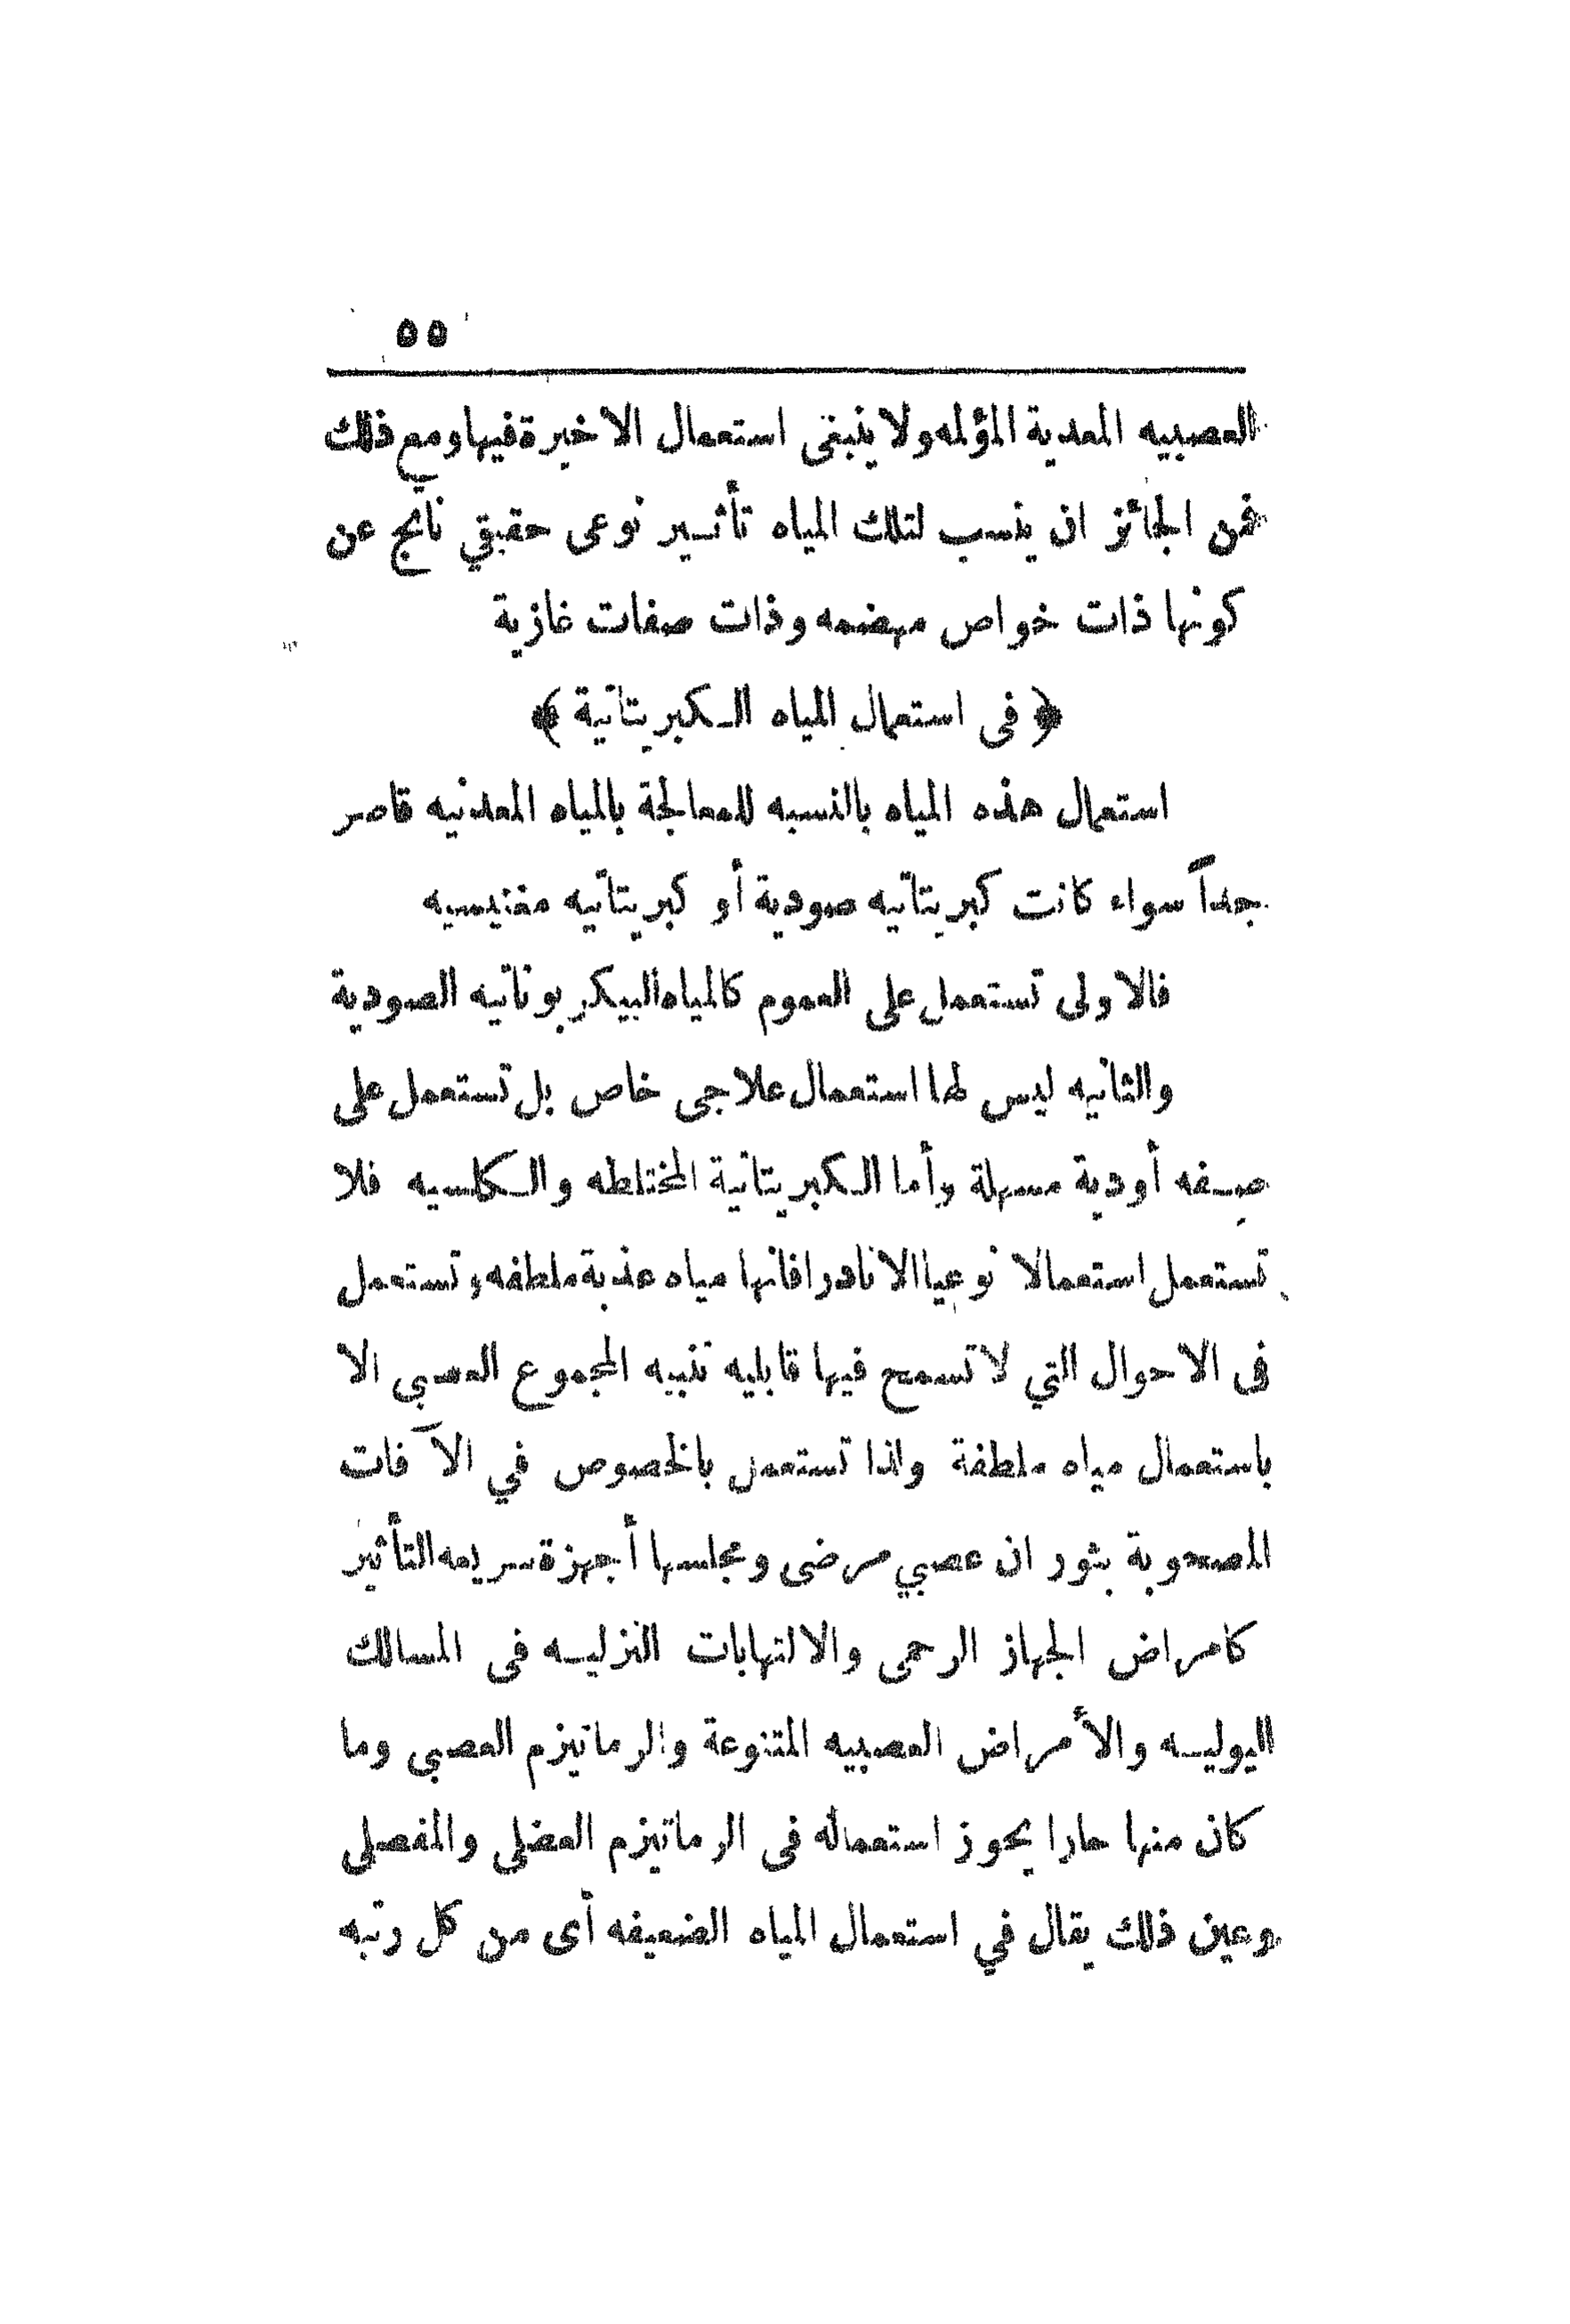 ٥٥
العصبيه المعدية المؤلمه ولا ينبغى استعمال الاخيرة فيها ومع ذلك
فمن الجائز ان ينسب لتلك المياه تأثير نوعى حقيقي ناتج عن
كونها ذات خواص مهضمه وذات صفات غازية
﴿ فى استعمال المياه الكبريتاتية ﴾
استعمال هذه المياه بالنسبه للمعالجة بالمياه المعدنيه قاصر
جداً سواء كانت كبريتاتيه صودية أو كبريتاتيه مغنيسيه
فالاولى تستعمل على العموم كالمياه البيكربوناتيه الصودية
والثانيه ليس لها استعمال علاجى خاص بل تستعمل على
صفه أودية مسهلة وأما الكبريتاتية المختلطه والكلسيه فلا
تستعمل استعمالا نوعيا الا نادرا فانها مياه عذبة ملطفه وتستعمل
فى الاحوال التي لا تسمح فيها قابليه تنبيه المجموع العصبي الا
باستعمال مياه ملطفة واذا تستعمل بالخصوص في الآفات
المصحوبة بثوران عصبي مرضى ومجلسها أجهزة سريعه التأثير
كامراض الجهاز الرحمى والالتهابات النزليه فى المسالك
البوليه والأمراض العصبيه المتنوعة والرماتيزم العصبى وما
كان منها حارا يجوز استعماله فى الرماتيزم العضلى والمفصلى
وعين ذلك يقال في استعمال المياه الضعيفه أى من كل رتبه